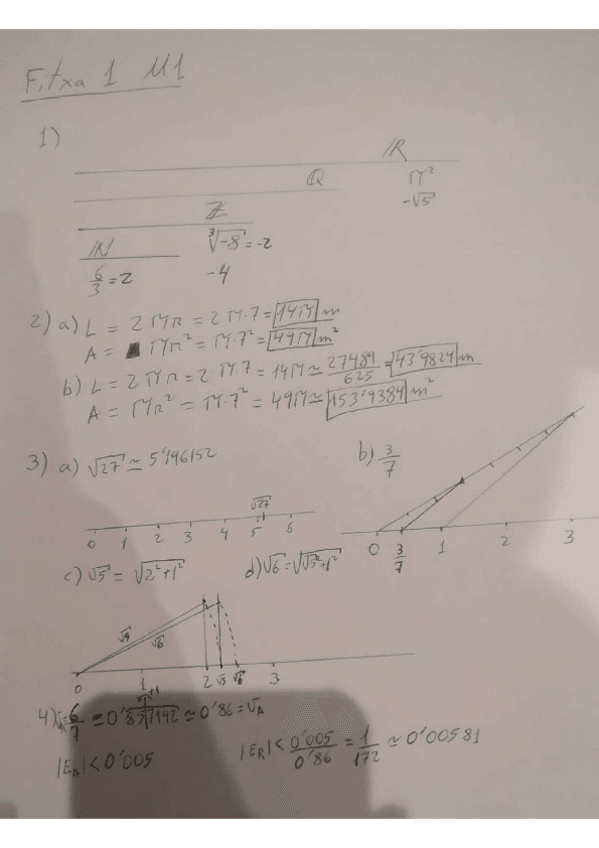 Fitxa 1 U1
1)
IR
Q π²
-√5
Z
IN ³√-8 = -2
6/3 = 2 -4
2) a) L = 2πr = 2π·7 = 14π m
A = πr² = π·7² = 49π m²
b) L = 2πr = 2·π·7 = 14π ≃ 27489/625 = 43'9824 m
A = πr² = π·7² = 49π ≃ 153'9384 m²
3) a) √27 ≃ 5'196152 b) 3/7
√27
0 1 2 3 4 5 6
0 3/7 1 2 3
c) √5 = √2²+1² d) √6 = √√5²+1²
√5 √6
0 1 2 √5 √6 3
+1
4) 6/7 ≃ 0'857142 ≃ 0'86 = VA
|EA| < 0'005 |ER| < 0'005/0'86 = 1/172 ≃ 0'00581